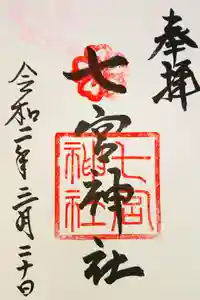 奉拝
七宮神社
七宮
神社
令和二年二月二十日